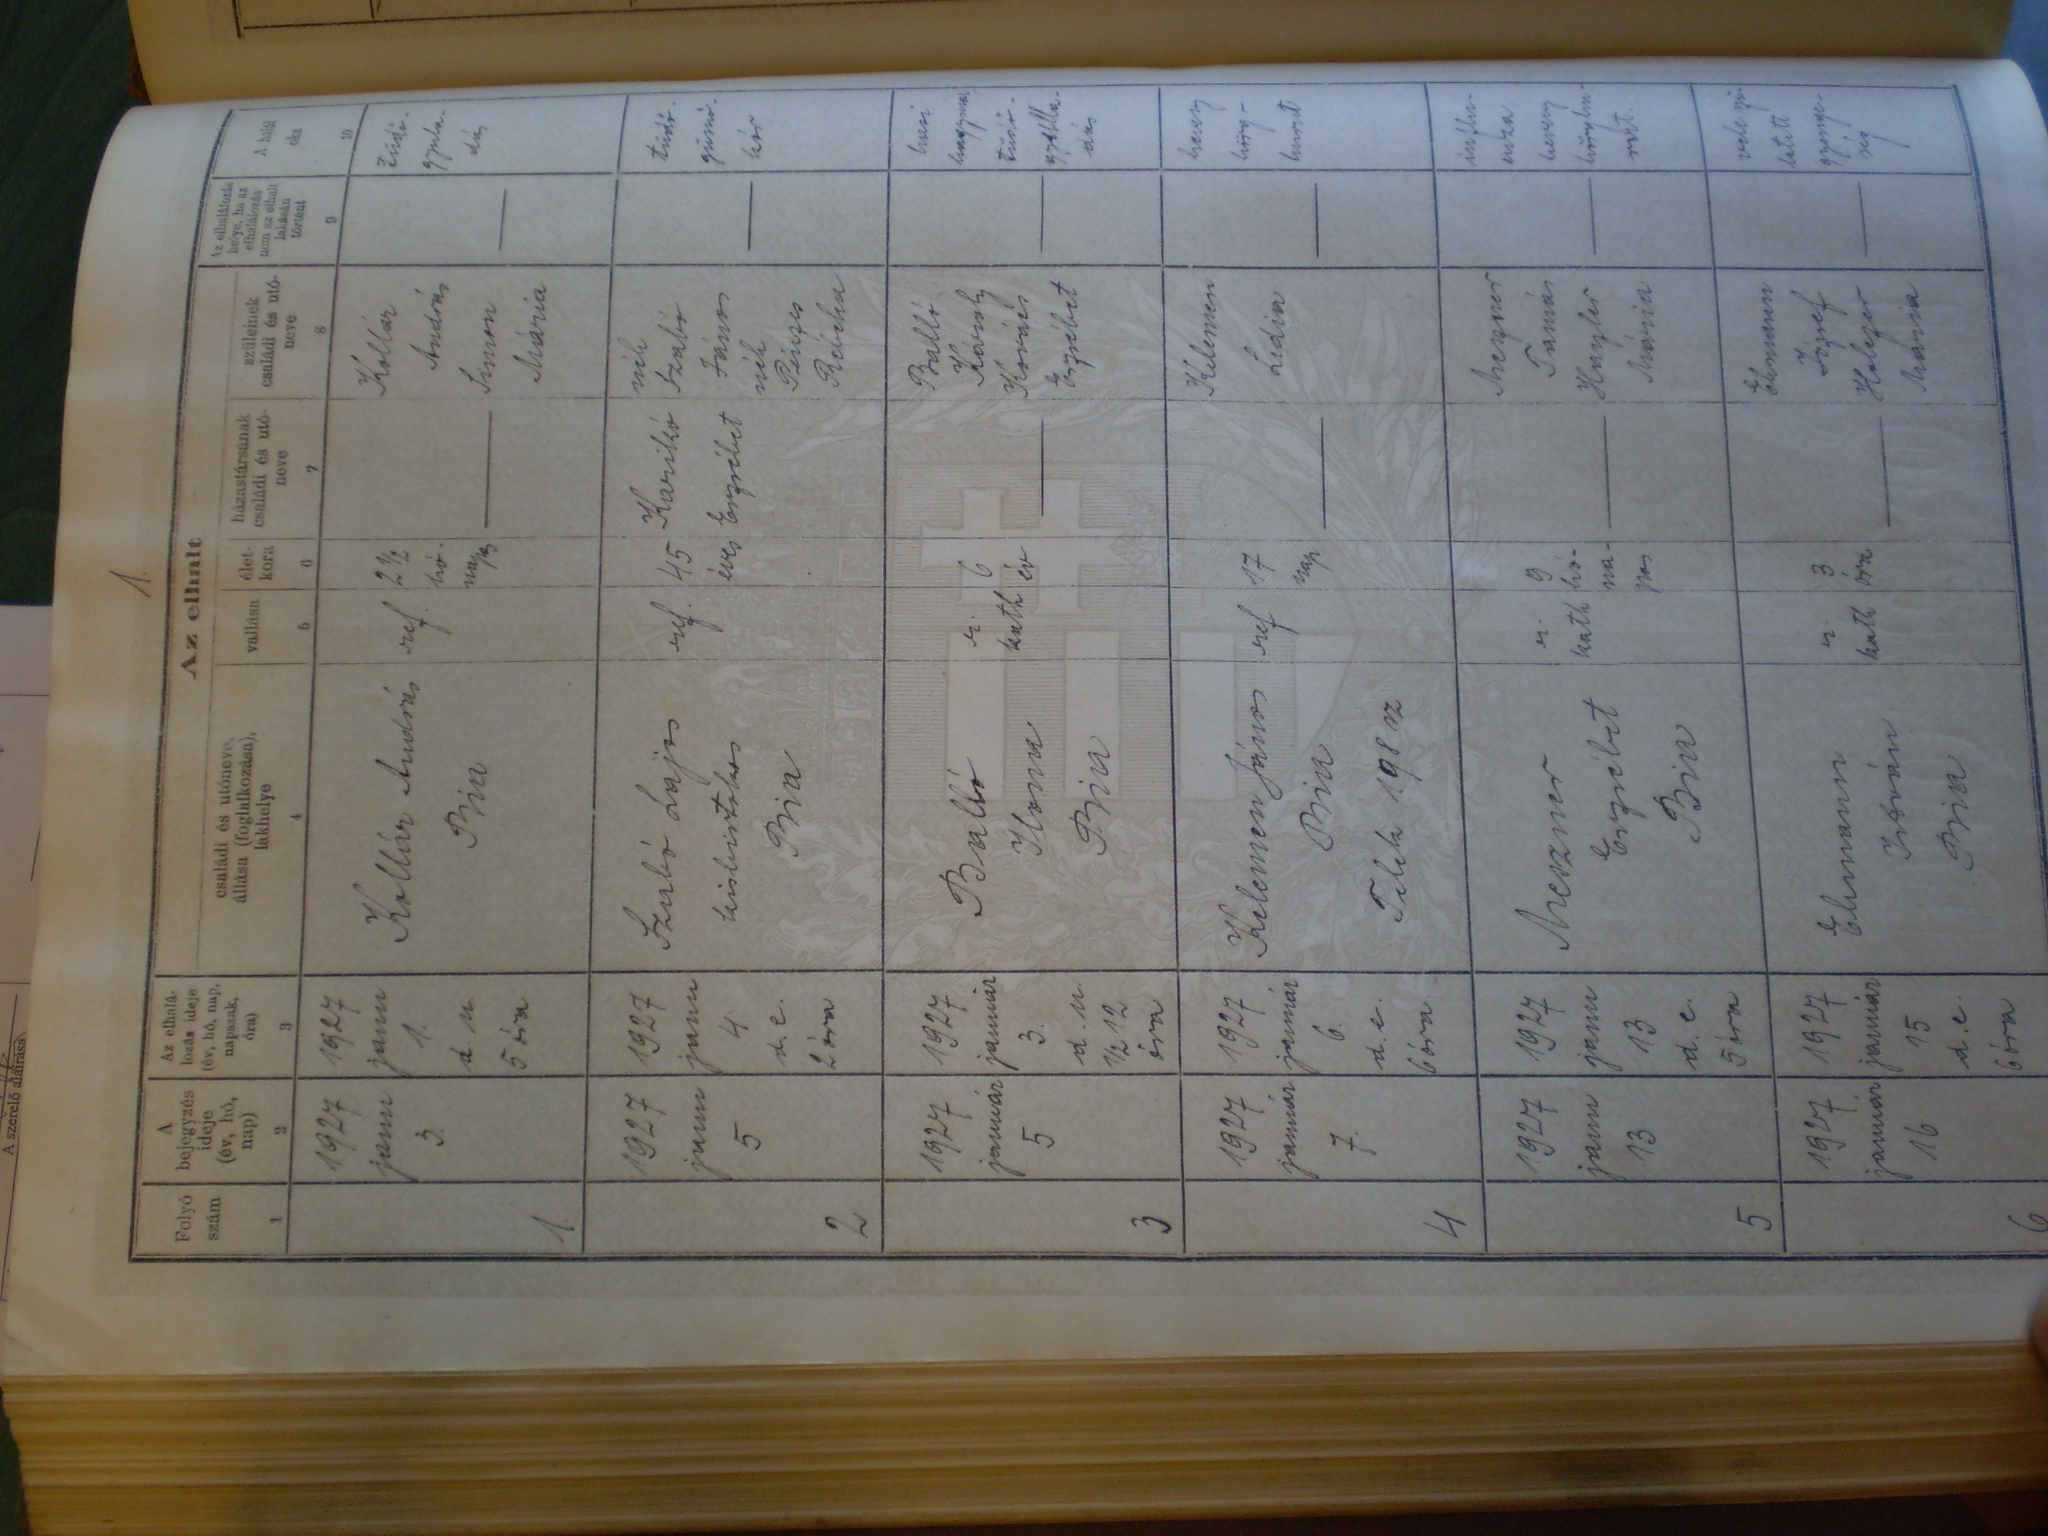 1.
Az elhalt
Folyó
szám
A
bejegyzés
ideje
(év, hó,
nap)
Az elhalá-
lozás ideje
(év, hó, nap,
napszak,
óra)
családi és utóneve,
állása (foglalkozása),
lakhelye
vallása
élet-
kora
házastársának
családi és utó-
neve
szüleinek
családi és utó-
neve
Az elhalálozás
helye, ha az
elhalálozás
nem az elhalt
lakásán
történt
A halál
oka
1
2
3
4
5
6
7
8
9
10
1.
1927
jann
3.
1927
jann
1.
d. u.
5 óra
Kollár András
Bia
ref.
2½
hó-
napos
Kollár
András
Simon
Mária
tüdő-
gyula-
dás
2
1927
jann
5
1927
jann
4.
d. e.
2 óra
Szabó Lajos
kisbirtokos
Bia
ref.
45
éves
Karikó
Erzsébet
néh
Szabó
János
néh
Pénzes
Rebeka
tüdő-
gümő-
kór
3
1927
január
5
1927
január
3.
d. u.
½ 12
óra
Balló
Ilona
Bia
r.
kath
6
év
Balló
Károly
Kovács
Erzsébet
tüdő-
4
1927
január
7.
1927
január
6.
d. e.
6 óra
Kelemen János
Bia
Telek 198 sz
ref
17
nap
Kelemen
Lidia
heveny
hörg-
hurut
5
1927
jann
13
1927
jann
13
d. e.
5 óra
Meszner
Erzsébet
Bia
r.
kath
9
hó-
na-
pos
Meszner
Tamás
Hayler
Mária
influ-
enza,
heveny
6
1927
január
16
1927
január
15
d. e.
6 óra
Ehmann
István
Bia
r.
kath
3
óra
Ehmann
József
Holczer
Mária
vele szü-
letett
gyenge-
ség
A szerelő aláírása